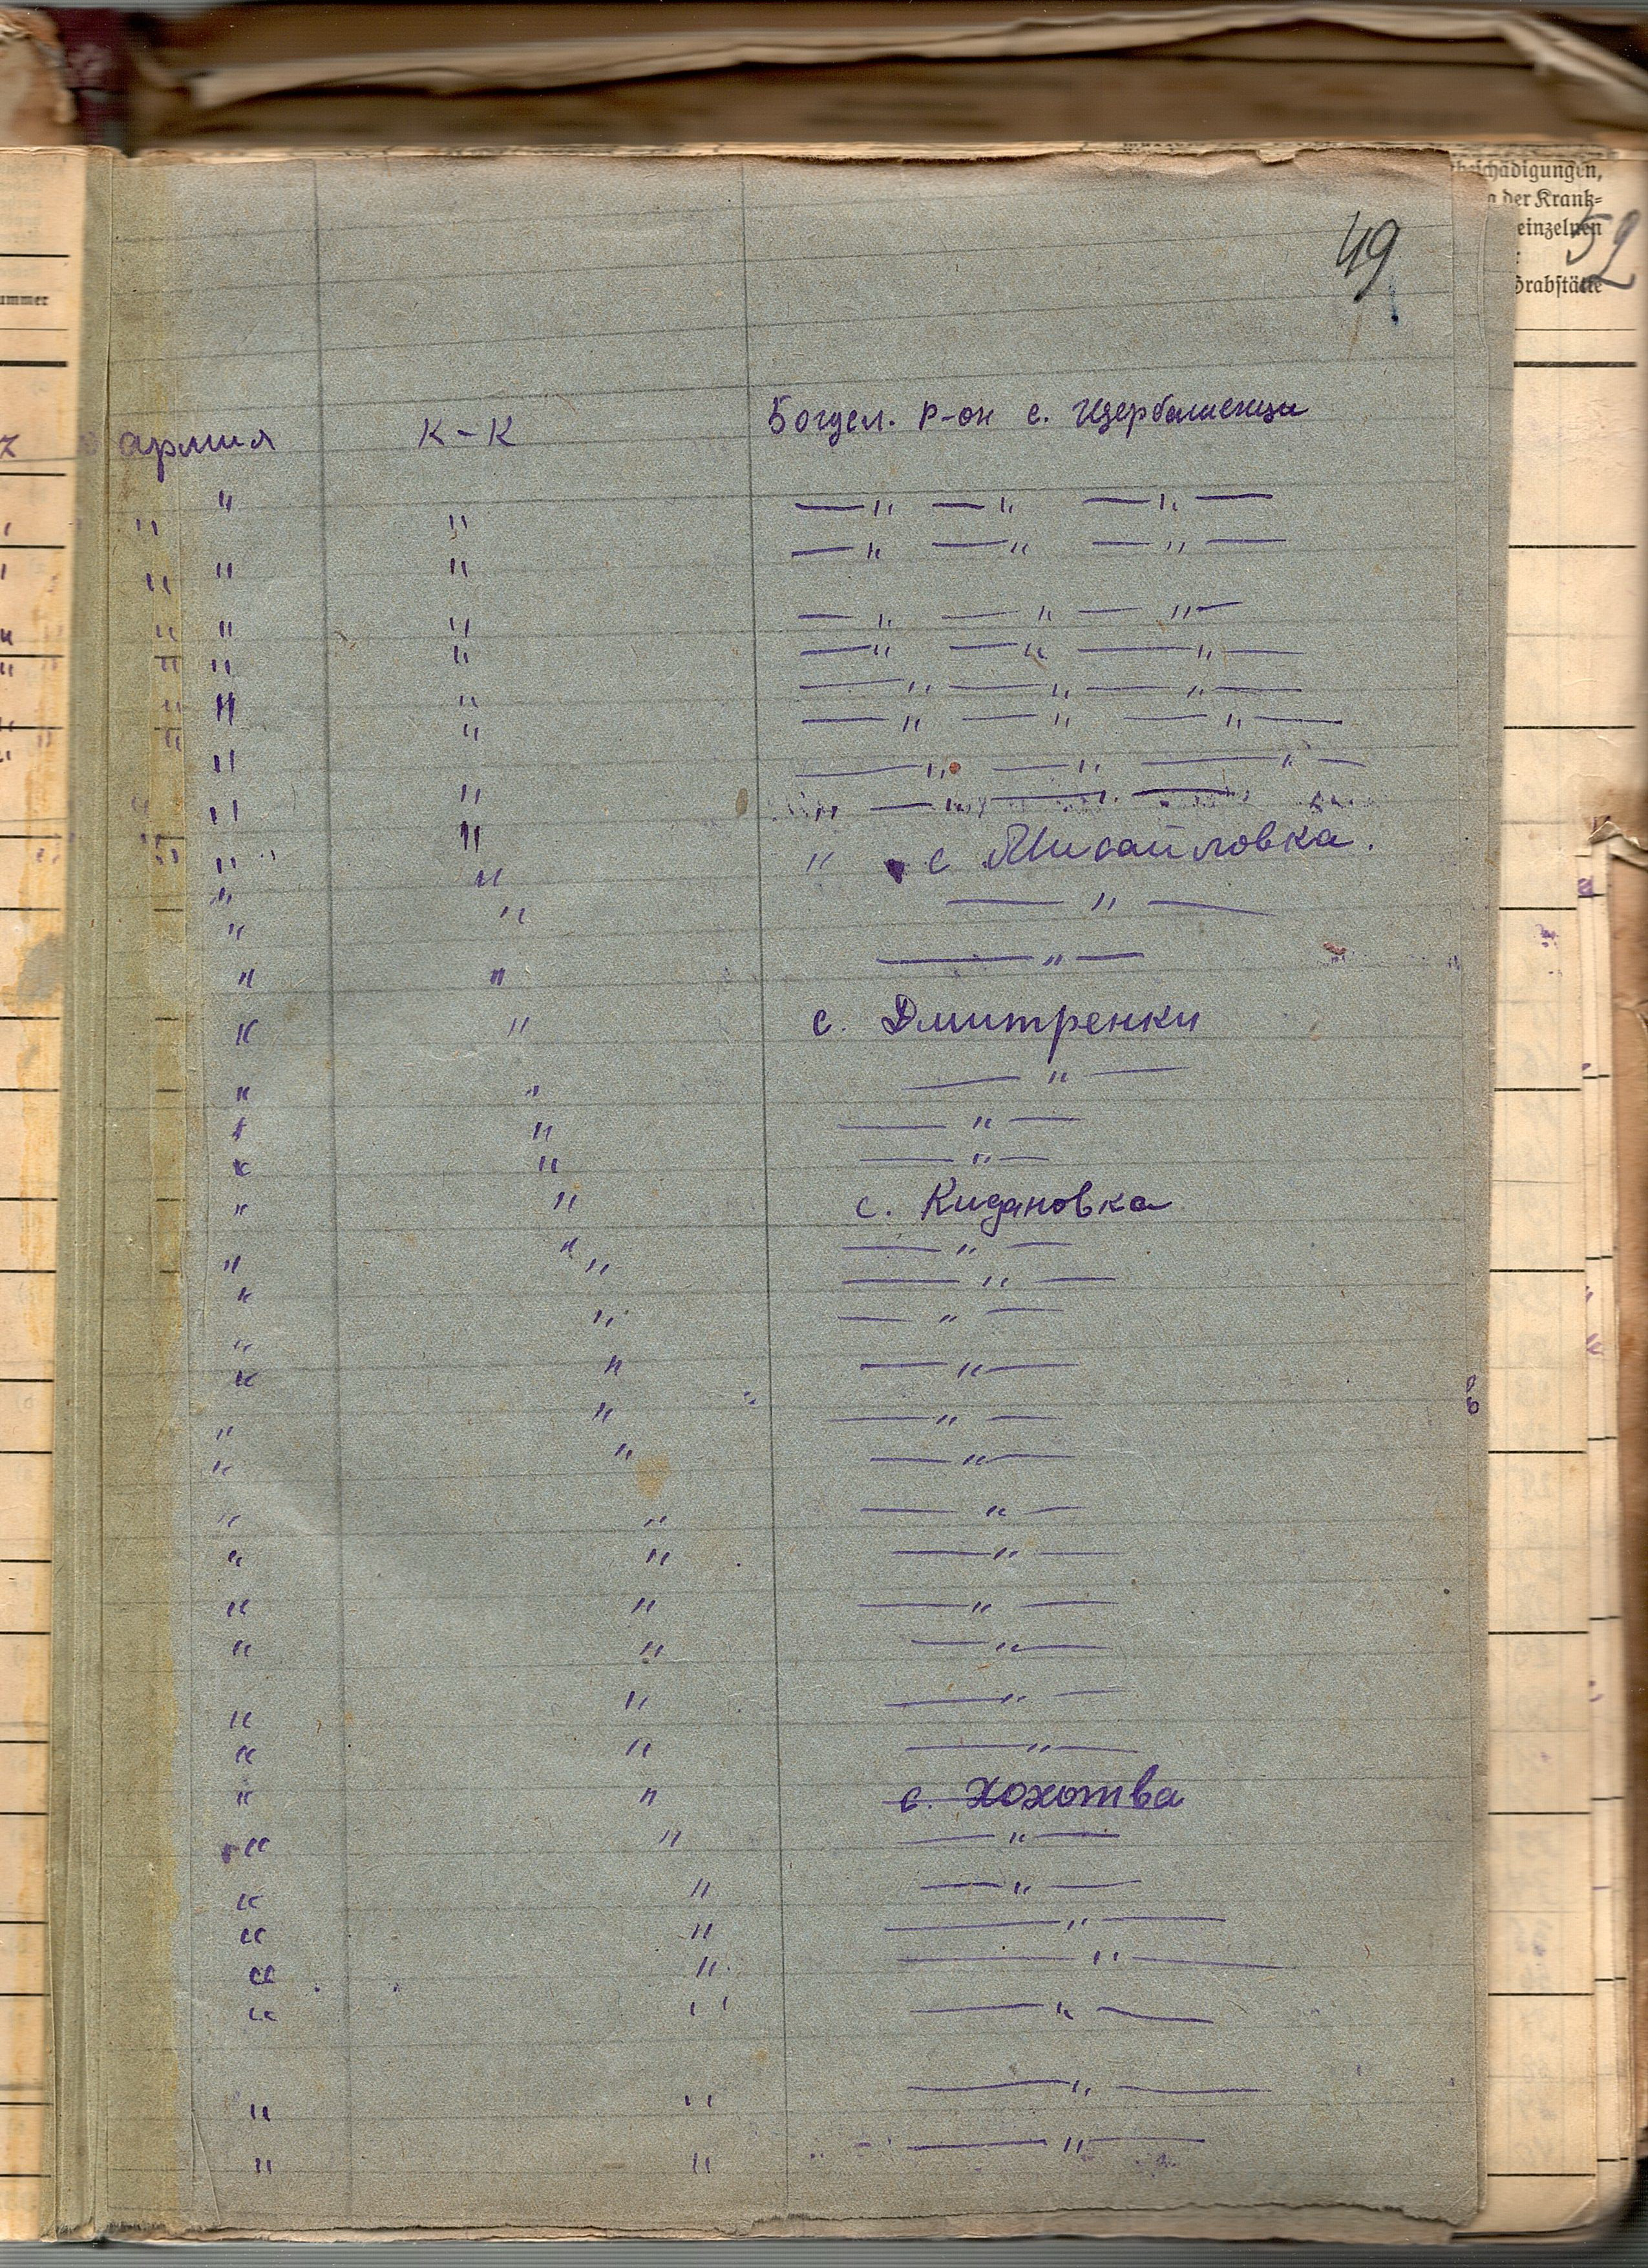 beschädigungen,
der Krank-
einzelnen
Grabstätte
52
49
ummer
армия К-К Богусл. р-он с. Щербашенци
" " —"— —"— —"—
" " " —"— —"— —"—
" " " —"— —"— —"—
" " " —"— —"— —"—
" " " —"— —"— —"—
" " " —"— —"— —"—
" —"— —"— —"—
" " " —"— — —
" " " с Михайловка.
" " —"—
" " —"—
" " с. Дмитренки
" " —"—
" " —"—
" " —"—
" " с. Кидановка
" " —"—
" " —"—
" " —"—
" " —"—
" " —"—
" " —"—
" " —"—
" " —"—
" " —"—
" " —"—
" " —"—
" " —"—
" " с. Хохотва
" " —"—
" " —"—
" " —"—
" " —"—
" " —"—
" " —"—
" " —"—